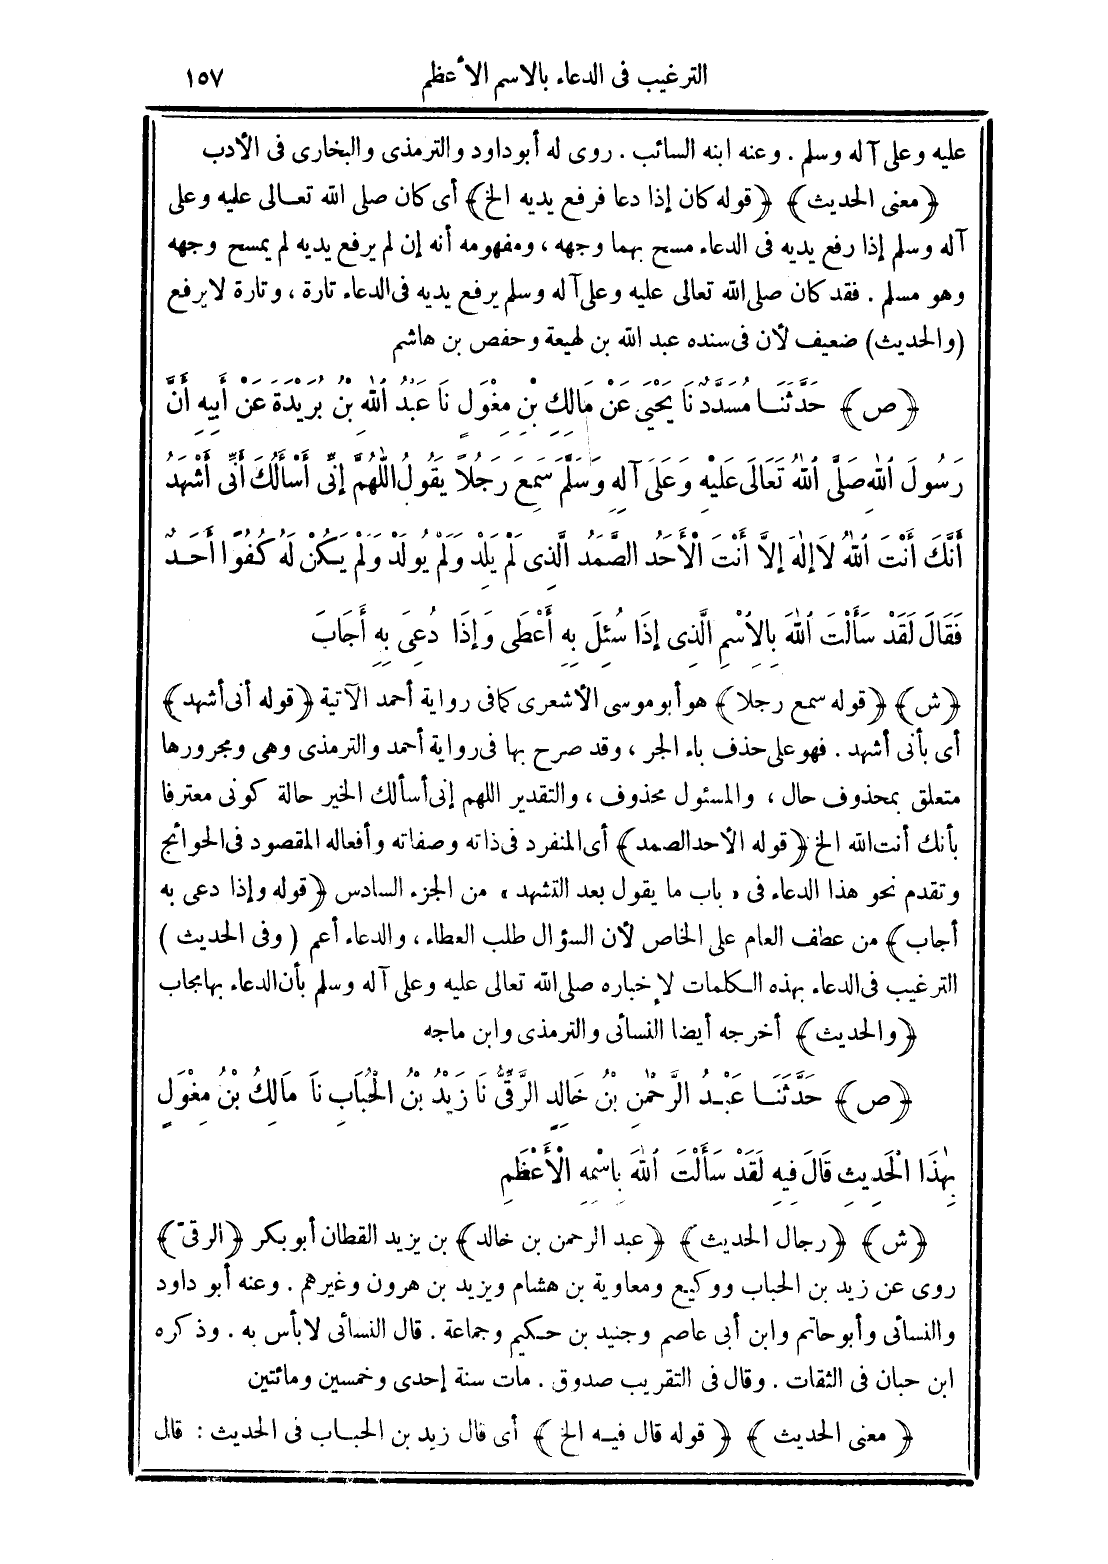 الترغيب فى الدعاء بالاسم الأعظم ١٥٧
عليه وعلى آله وسلم . وعنه ابنه السائب . روى له أبوداود والترمذى والبخارى فى الأدب
﴿معنى الحديث﴾ ﴿قوله كان إذا دعا فرفع يديه الخ﴾ أى كان صلى الله تعالى عليه وعلى
آله وسلم إذا رفع يديه فى الدعاء مسح بهما وجهه ، ومفهومه أنه إن لم يرفع يديه لم يمسح وجهه
وهو مسلم . فقد كان صلى الله تعالى عليه وعلى آله وسلم يرفع يديه فى الدعاء تارة ، وتارة لا يرفع
(والحديث) ضعيف لأن فى سنده عبد الله بن لهيعة وحفص بن هاشم
﴿ص﴾ حَدَّثَنَا مُسَدَّدٌ نَا يَحْيَى عَنْ مَالِكِ بْنِ مِغْوَلٍ نَا عَبْدُ اللهِ بْنُ بُرَيْدَةَ عَنْ أَبِيهِ أَنَّ
رَسُولَ اللهِ صَلَّى اللهُ تَعَالَى عَلَيْهِ وَعَلَى آلِهِ وَسَلَّمَ سَمِعَ رَجُلًا يَقُولُ اللَّهُمَّ إِنِّى أَسْأَلُكَ أَنِّى أَشْهَدُ
أَنَّكَ أَنْتَ اللهُ لَا إِلٰهَ إِلَّا أَنْتَ الْأَحَدُ الصَّمَدُ الَّذِى لَمْ يَلِدْ وَلَمْ يُولَدْ وَلَمْ يَكُنْ لَهُ كُفُوًا أَحَدٌ
فَقَالَ لَقَدْ سَأَلْتَ اللهَ بِالِاسْمِ الَّذِى إِذَا سُئِلَ بِهِ أَعْطَى وَإِذَا دُعِىَ بِهِ أَجَابَ
﴿ش﴾ ﴿قوله سمع رجلا﴾ هو أبو موسى الأشعرى كما فى رواية أحمد الآتية ﴿قوله أنى أشهد﴾
أى بأنى أشهد . فهو على حذف باء الجر ، وقد صرح بها فى رواية أحمد والترمذى وهى ومجرورها
متعلق بمحذوف حال ، والمسئول محذوف ، والتقدير اللهم إنى أسألك الخير حالة كونى معترفا
بأنك أنت الله الخ ﴿قوله الأحد الصمد﴾ أى المنفرد فى ذاته وصفاته وأفعاله المقصود فى الحوائج
وتقدم نحو هذا الدعاء فى « باب ما يقول بعد التشهد » من الجزء السادس ﴿قوله وإذا دعى به
أجاب﴾ من عطف العام على الخاص لأن السؤال طلب العطاء ، والدعاء أعم ( وفى الحديث )
الترغيب فى الدعاء بهذه الكلمات لإخباره صلى الله تعالى عليه وعلى آله وسلم بأن الدعاء بها مجاب
﴿والحديث﴾ أخرجه أيضا النسائى والترمذى وابن ماجه
﴿ص﴾ حَدَّثَنَا عَبْدُ الرَّحْمٰنِ بْنُ خَالِدٍ الرَّقِّىُّ نَا زَيْدُ بْنُ الْحُبَابِ نَا مَالِكُ بْنُ مِغْوَلٍ
بِهٰذَا الْحَدِيثِ قَالَ فِيهِ لَقَدْ سَأَلْتَ اللهَ بِاسْمِهِ الْأَعْظَمِ
﴿ش﴾ ﴿رجال الحديث﴾ ﴿عبد الرحمن بن خالد﴾ بن يزيد القطان أبو بكر ﴿الرقىّ﴾
روى عن زيد بن الحباب ووكيع ومعاوية بن هشام ويزيد بن هرون وغيرهم . وعنه أبو داود
والنسائى وأبو حاتم وابن أبى عاصم وجنيد بن حكيم وجماعة . قال النسائى لا بأس به . وذكره
ابن حبان فى الثقات . وقال فى التقريب صدوق . مات سنة إحدى وخمسين ومائتين
﴿معنى الحديث﴾ ﴿قوله قال فيه الخ﴾ أى قال زيد بن الحباب فى الحديث : قال